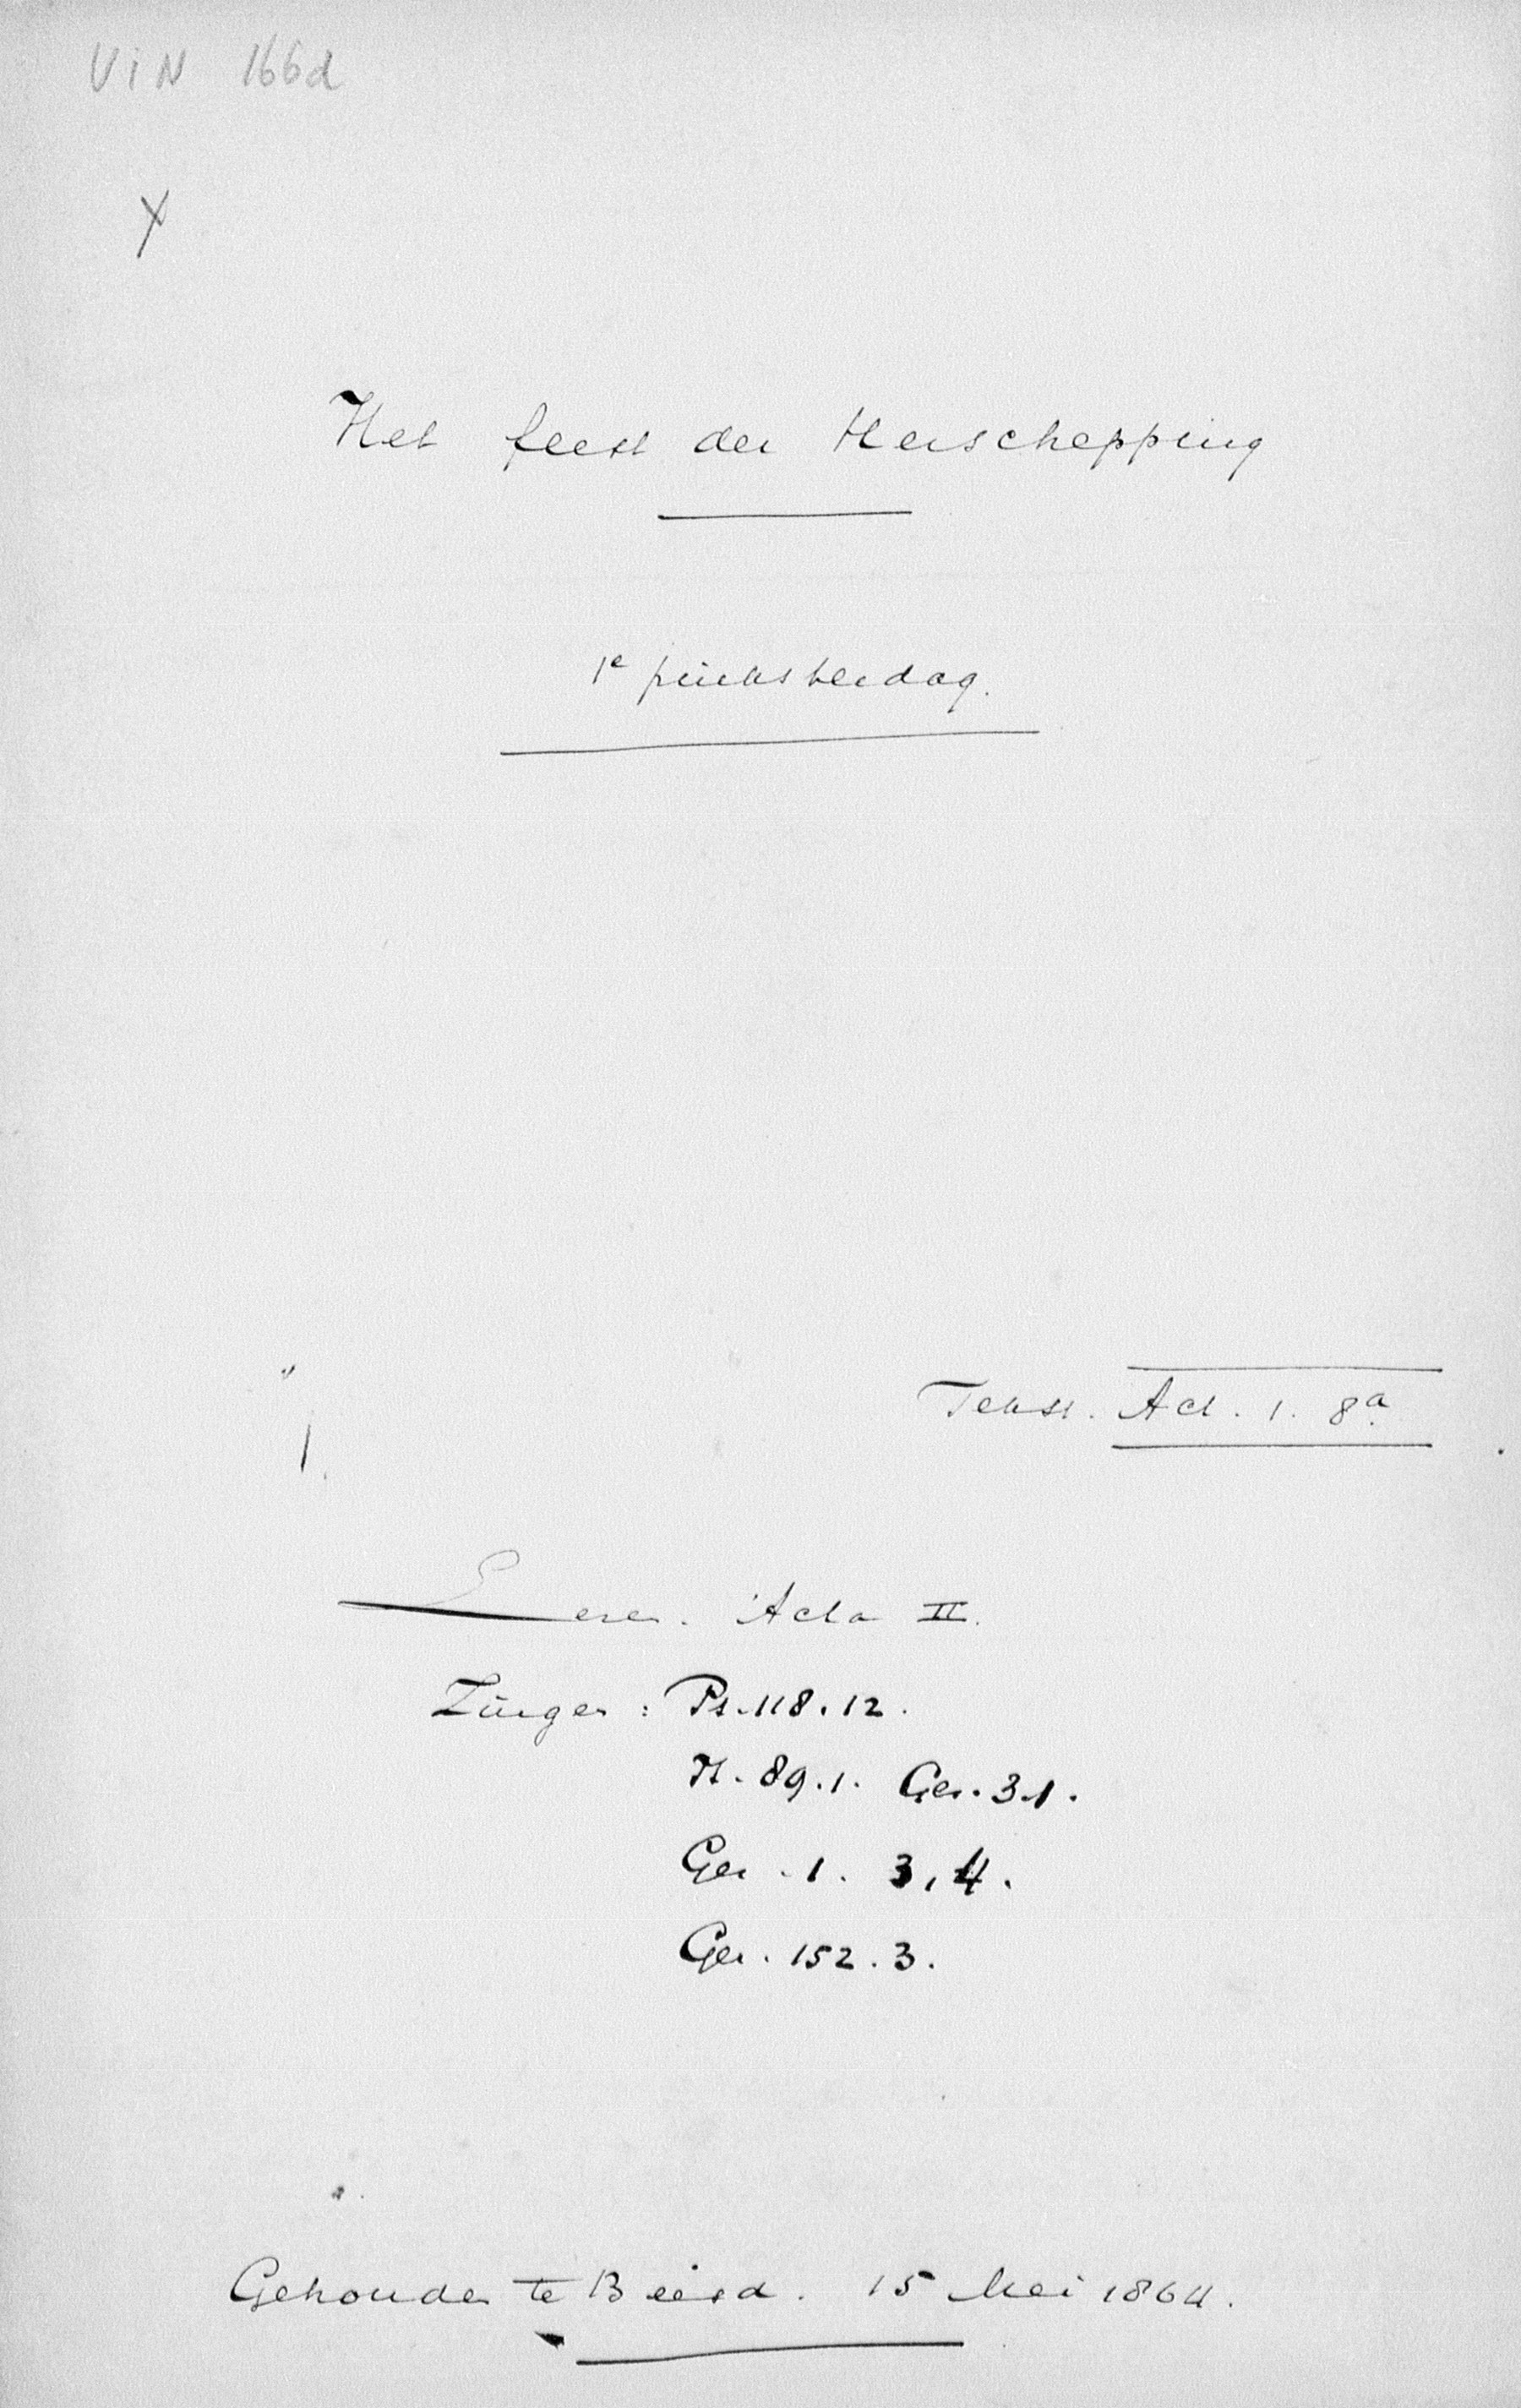 ViN 166d
Het feest der Herschepping
1e pinksterdag.
Tekst. Act. 1. 8a.
1.
Lezen. Acta II.
Zingen: Ps. 118. 12.
Ps. 89. 1. Gez. 3. 1.
Gez. 1. 3, 4.
Gez. 152. 3.
Gehouden te Beesd. 15 Mei 1864.